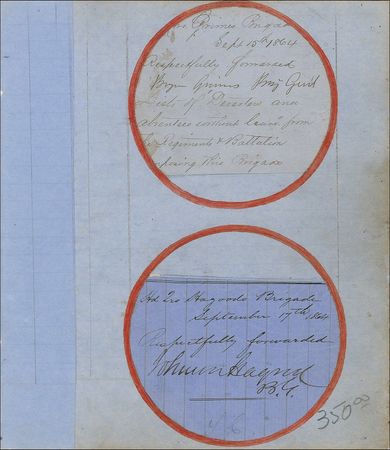 Grimes Brigade
Sept 15th 1864
Respectfully forwarded
Bryan Grimes Brig Genl
Lists of Deserters and
absentees without leave from
Regiments & Battalion
this Brigade
Hd Qrs Hagoods Brigade
September 17th 1864
Respectfully forwarded
Johnson Hagood
B.G.
350.00